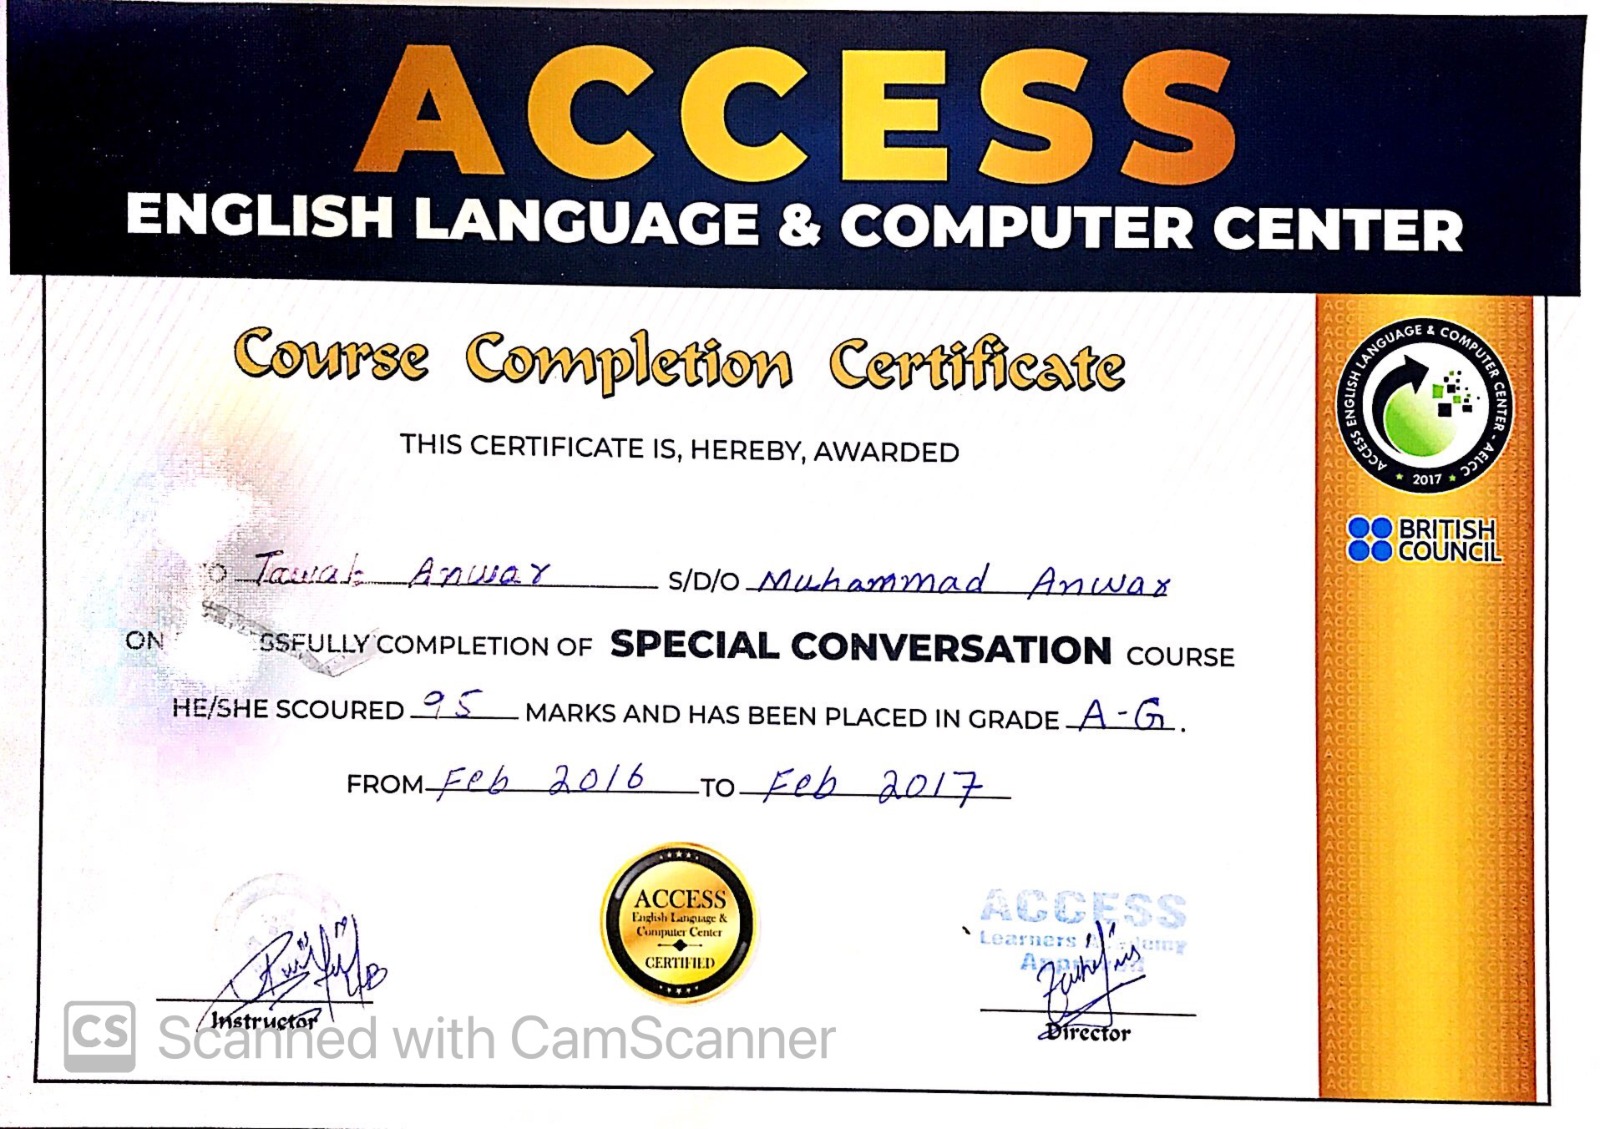 ACCESS
ENGLISH LANGUAGE & COMPUTER CENTER
Course Completion Certificate
THIS CERTIFICATE IS, HEREBY, AWARDED
Anwar S/D/O Muhammad Anwar
ON SSFULLY COMPLETION OF SPECIAL CONVERSATION COURSE
HE/SHE SCOURED 95 MARKS AND HAS BEEN PLACED IN GRADE A-G.
FROM Feb 2016 TO Feb 2017
ACCESS ENGLISH LANGUAGE & COMPUTER CENTER - AELCC
2017
BRITISH
COUNCIL
ACCESS
English Language &
Computer Center
CERTIFIED
ACCESS
Learners
Instructor
Director
CS Scanned with CamScanner